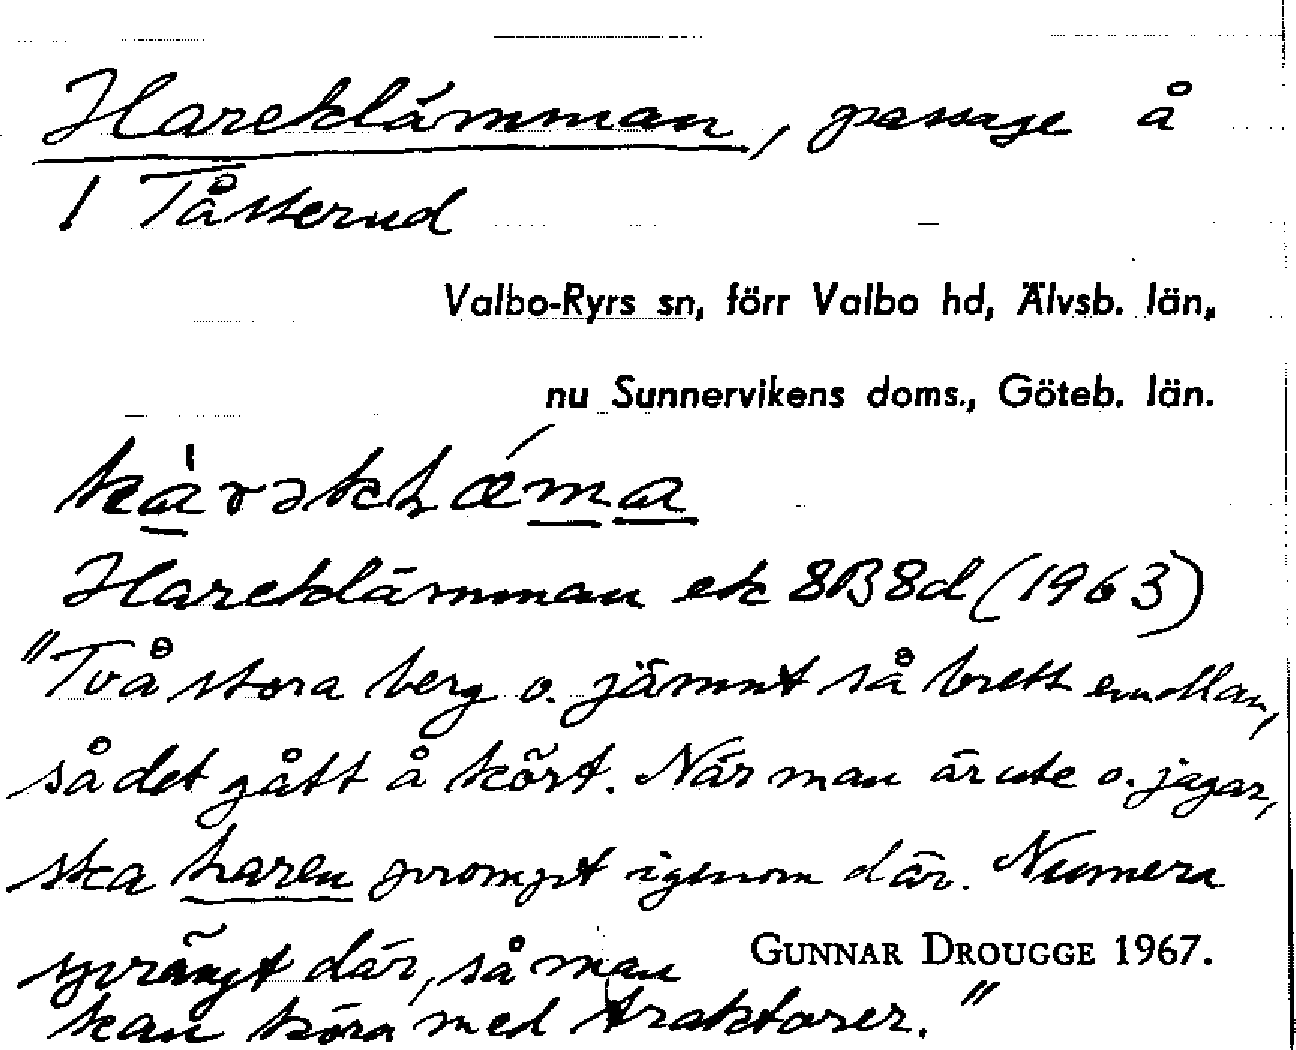 Hareklämman, passage å
1 Tåsterud
Valbo-Ryrs sn, förr Valbo hd, Älvsb. län,
nu Sunnervikens doms., Göteb. län.
Hareklämman ek 8B8d (1963)
"Två stora berg o. jämnt så brett emellan,
så det gått å kört. När man är ute o. jagar,
ska haren prompt igenom där. Numera
sprängt där, så man
GUNNAR DROUGGE 1967.
kan köra med traktorer."